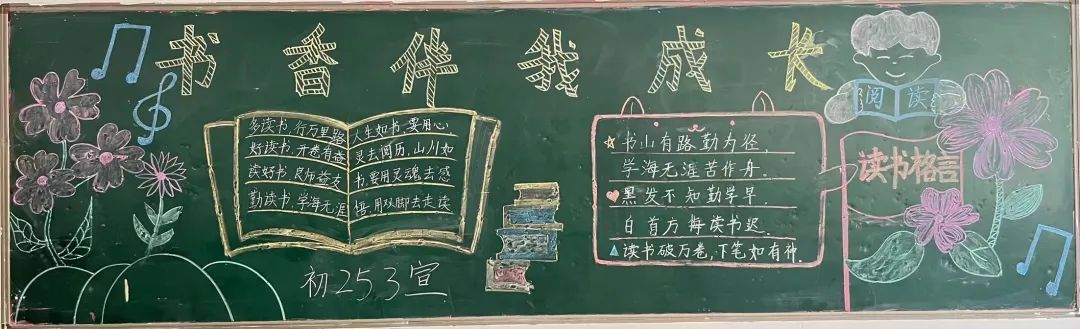 书香伴我成长
阅读
多读书,行万里路
好读书,开卷有益
读好书,良师益友
勤读书,学海无涯
人生如书,要用心
灵去阅历,山川如
书,要用灵魂去感
悟,用双脚去走读
书山有路勤为径,
学海无涯苦作舟.
黑发不知勤学早,
白首方悔读书迟.
读书破万卷,下笔如有神.
读书格言
初253宣